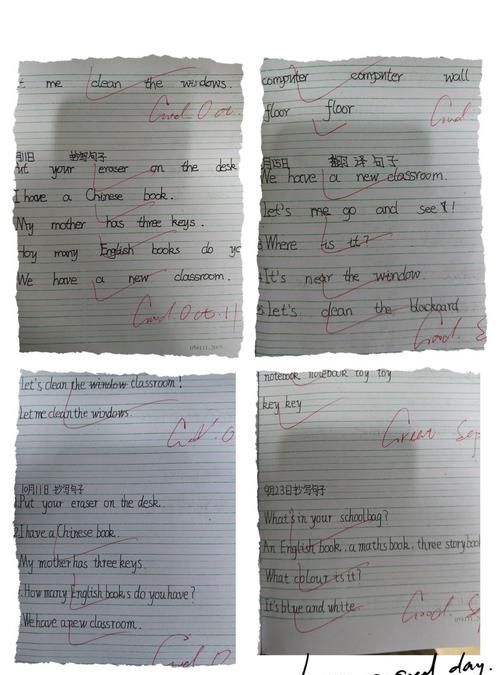 me clean the windows.
Good Oct.
月11日 抄写句子
Put your eraser on the desk
I have a Chinese book.
My mother has three keys.
How many English books do yo
We have a new classroom.
Good. Oct. 11
computer computer wall
floor floor
Good.
月15日 翻译句子
We have a new classroom.
Let's me go and see!
Where is it?
It's near the window.
Let's clean the blackboard
Good. S
Let's clean the window classroom!
Let me clean the windows.
Good. O
10月11日 抄写句子
Put your eraser on the desk.
I have a Chinese book.
My mother has three keys.
How many English books do you have?
We have a new classroom.
Good. O
notebook notebook toy toy
key key
Great Sep
9月23日抄写句子
What's in your schoolbag?
An English book, a maths book, three storybook
What colour is it?
It's blue and white.
Good. Sep
day.